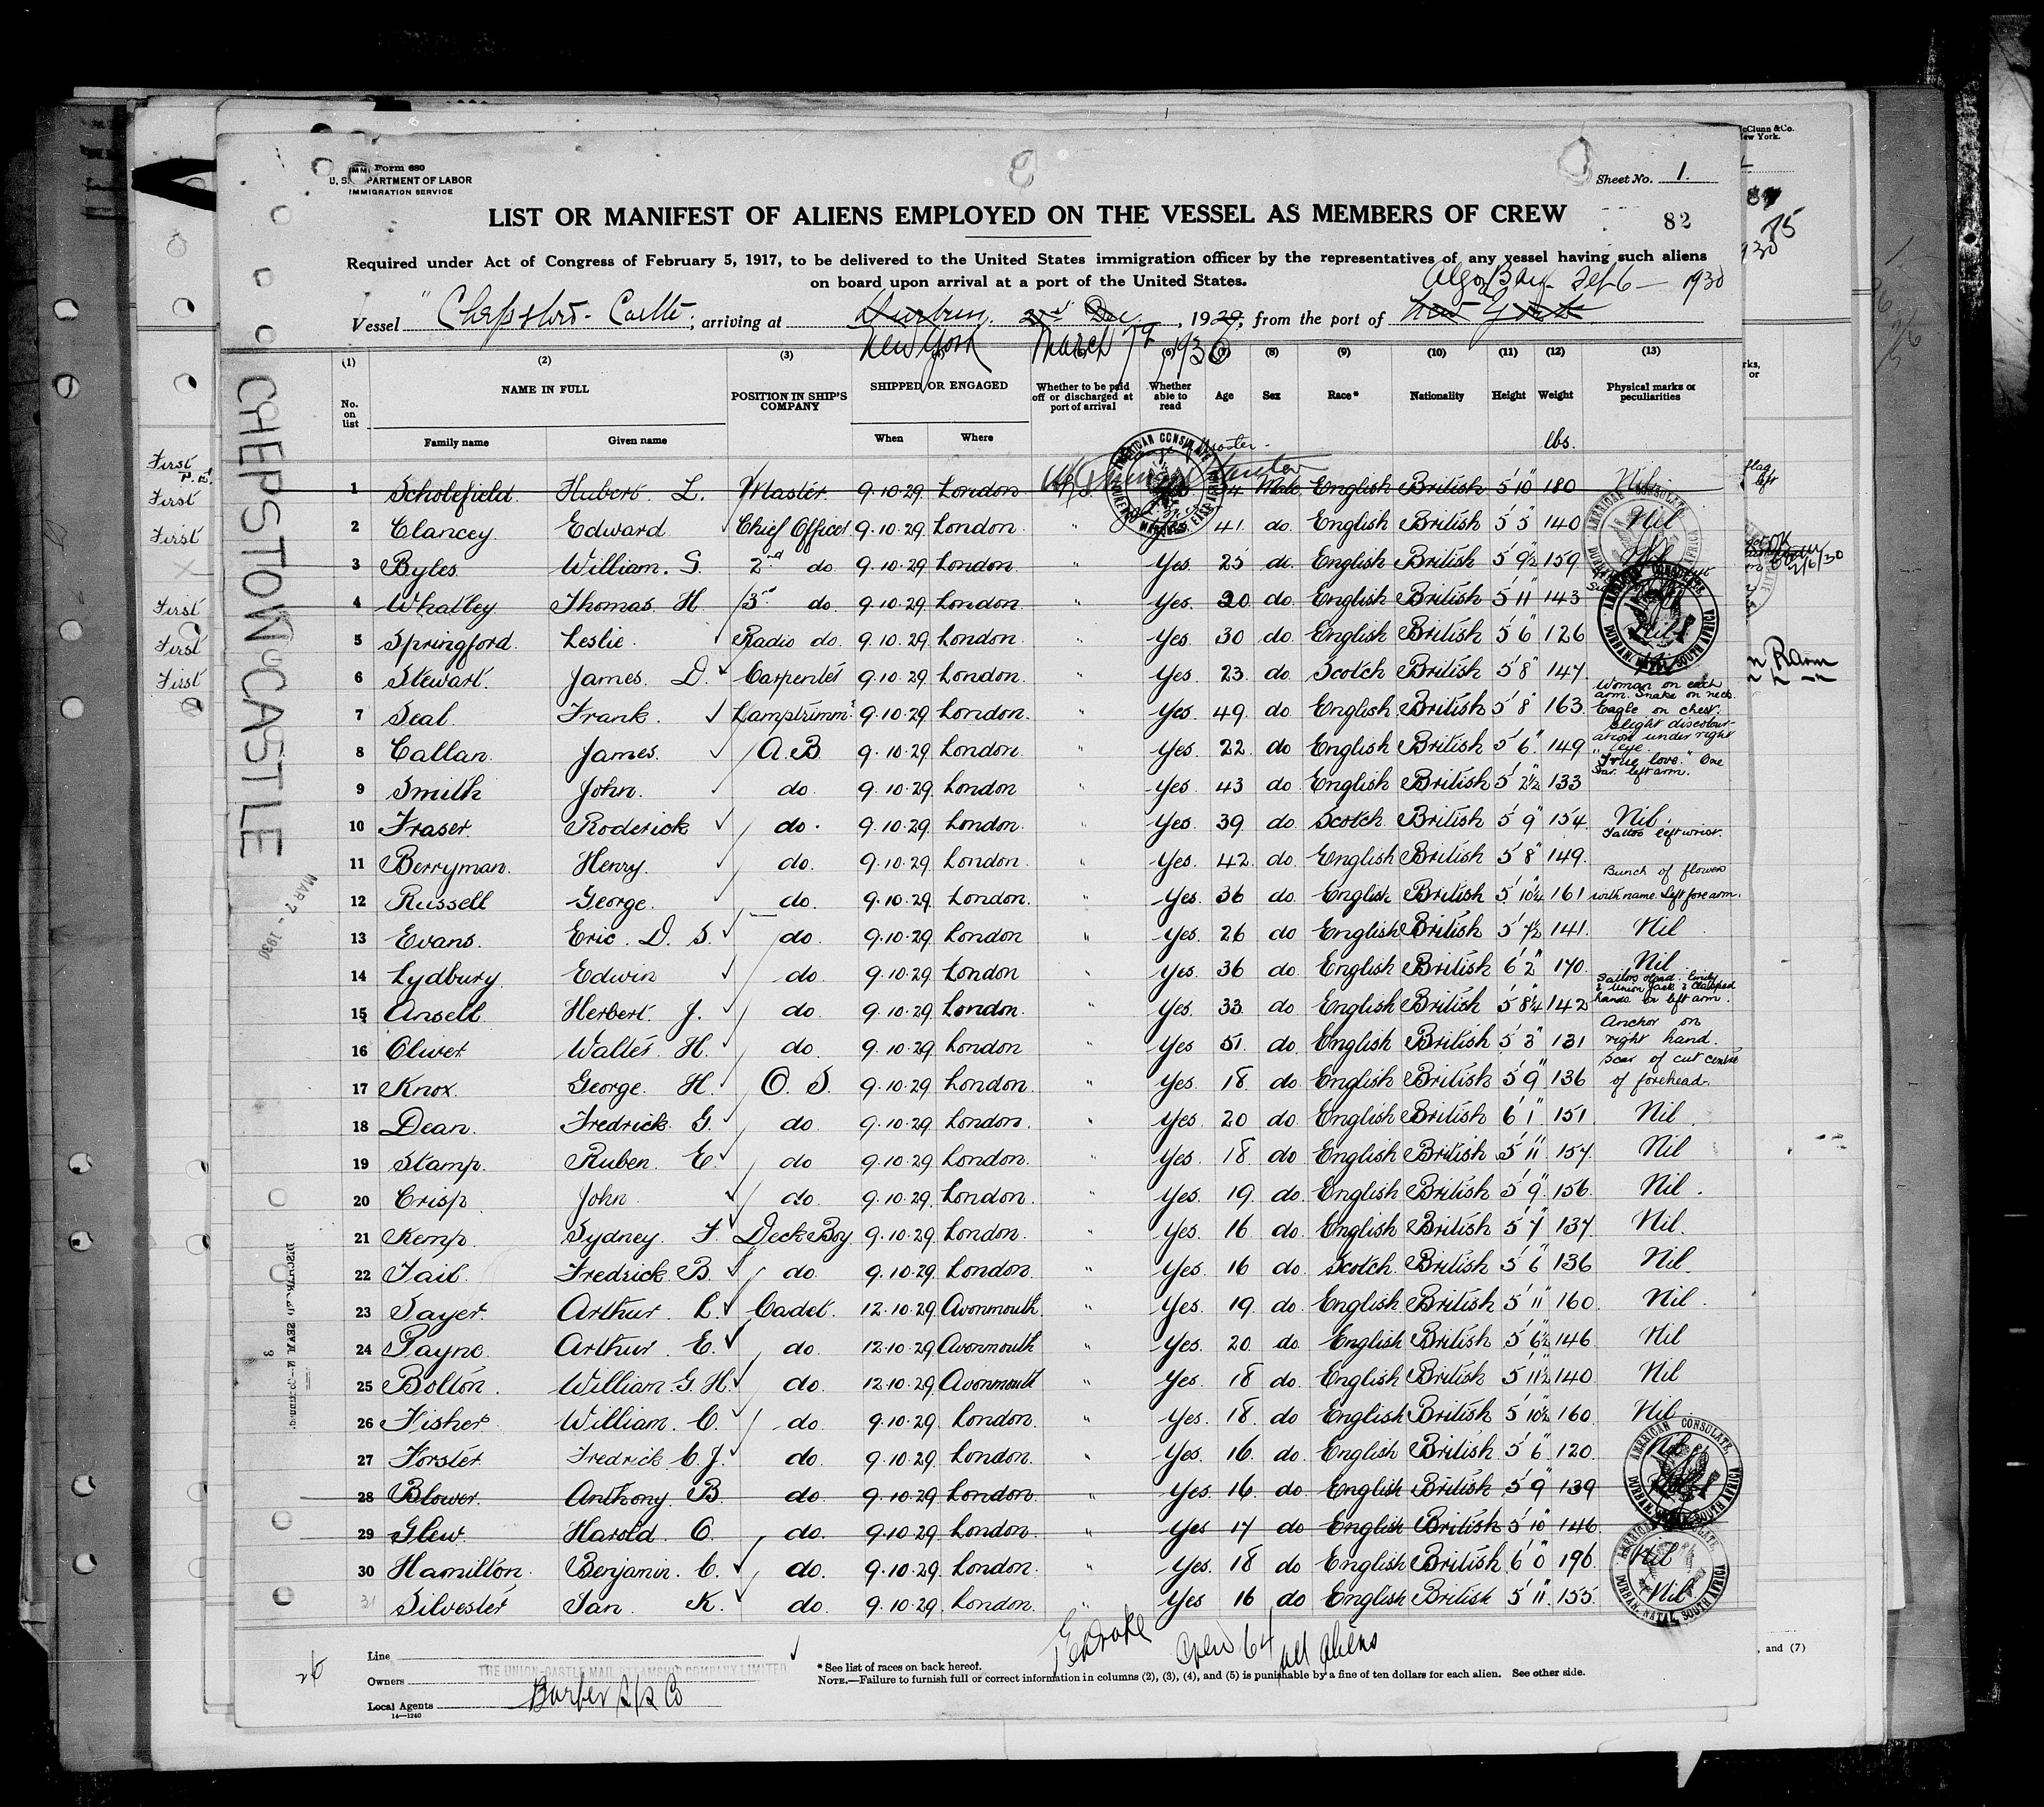 Form 680
U. S. DEPARTMENT OF LABOR
IMMIGRATION SERVICE
Sheet No. 1.
LIST OR MANIFEST OF ALIENS EMPLOYED ON THE VESSEL AS MEMBERS OF CREW
82
Required under Act of Congress of February 5, 1917, to be delivered to the United States immigration officer by the representatives of any vessel having such aliens
on board upon arrival at a port of the United States.
Algoa Bay Feb 6 - 1930
Vessel "Chepstow Castle", arriving at Durban 21st Dec, 1929, from the port of New York
New York March 7th 1930
(1) (2) (3) (8) (9) (10) (11) (12) (13)
No. on list
NAME IN FULL
Family name Given name
POSITION IN SHIP'S COMPANY
SHIPPED OR ENGAGED
When Where
Whether to be paid off or discharged at port of arrival
Whether able to read
Age Sex Race* Nationality Height Weight
Physical marks or peculiarities
lbs.
1 Scholefield Hubert L. Master 9.10.29 London 54 Male English British 5'10" 180 Nil
2 Clancey Edward Chief Officer 9.10.29 London " 41 do English British 5'5" 140 Nil
3 Byles William. G. 2nd do 9.10.29 London " Yes 25 do English British 5'9½ 159
4 Whatley Thomas H 3rd do. 9.10.29 London " Yes. 20 do. English British 5'11" 143
5 Springford Leslie Radio do. 9.10.29 London " Yes. 30 do English British 5'6" 126 Nil
6 Stewart James D. Carpenter 9.10.29 London " Yes. 23 do Scotch British 5'8" 147
7 Seal Frank Lamptrimmr 9.10.29 London " Yes. 49 do English British 5'8" 163 Woman on each arm. Snake on neck. Eagle on chest.
8 Callan James A.B. 9.10.29 London " Yes. 22 do English British 5'6" 149 Slight discolouration under right eye.
9 Smith John do. 9.10.29 London " Yes. 43 do English British 5'2½ 133 "True love." One Star. left arm.
10 Fraser Roderick do. 9.10.29 London " Yes. 39 do Scotch British 5'9" 154 Nil.
11 Berryman Henry do. 9.10.29 London " Yes. 42 do English British 5'8" 149. Tattoo left wrist.
12 Russell George do. 9.10.29 London " Yes. 36 do English British 5'10¼ 161 Bunch of flowers with name. Left forearm.
13 Evans Eric. D. S. do. 9.10.29 London " Yes. 26 do English British 141 Nil
14 Lydbury Edwin do. 9.10.29 London " Yes. 36 do English British 6'2" 170 Nil
15 Ansell Herbert J. do. 9.10.29 London " Yes. 33 do English British 5'8¼ 142 Sailors Head. & Union Jack & Clasped hands on left arm.
16 Oliver Walter H. do. 9.10.29 London " Yes 51 do English British 5'3" 131 Anchor on right hand.
17 Knox George H. O. S. 9.10.29 London " Yes. 18 do English British 5'9" 136 Scar of cut centre of forehead.
18 Dean Fredrick G. do. 9.10.29 London " Yes 20 do English British 6'1" 151 Nil
19 Stamp Ruben E. do 9.10.29 London " Yes. 18 do English British 5'11" 157 Nil
20 Crisp John do. 9.10.29 London " Yes. 19 do. English British 5'9" 156 Nil.
21 Kemp Sydney F. Deck Boy 9.10.29 London " Yes. 16 do English British 5'7" 137 Nil.
22 Tait Fredrick B. do. 9.10.29 London " Yes. 16 do Scotch British 5'6" 136 Nil.
23 Sayer Arthur L. Cadet. 12.10.29 Avonmouth " Yes. 19 do English British 5'11" 160 Nil.
24 Payne Arthur E. do. 12.10.29 Avonmouth " Yes. 20 do English British 5'6½ 146 Nil
25 Bolton William G. H. do. 12.10.29 Avonmouth " Yes. 18 do. English British 5'11½ 140 Nil
26 Fisher William. C. do. 9.10.29 London " Yes. 18 do English British 5'10½ 160 Nil.
27 Forster Fredrick C. J. do. 9.10.29 London " Yes. 16 do English British 5'6" 120 Nil
28 Blower Anthony B. do. 9.10.29 London " Yes. 16 do. English British 5'9" 139 Nil
29 Glew Harold C. do. 9.10.29 London " Yes 17 do English British 5'10" 146
30 Hamilton Benjamin C. do. 9.10.29 London " Yes. 18 do English British 6'0" 196 Nil
31 Silvester Ian K. do. 9.10.29 London " Yes 16 do English British 5'11" 155 Nil
CHEPSTOW CASTLE
MAR 7 - 1930
AMERICAN CONSULATE
DURBAN, NATAL, SOUTH AFRICA
AMERICAN CONSULATE,
DURBAN, NATAL, SOUTH AFRICA
AMERICAN CONSULATE,
DURBAN, NATAL, SOUTH AFRICA
Crew 64 all aliens
Line
Owners THE UNION-CASTLE MAIL STEAMSHIP COMPANY LIMITED
Local Agents Barber S/S Co
14—1240
* See list of races on back hereof.
NOTE.—Failure to furnish full or correct information in columns (2), (3), (4), and (5) is punishable by a fine of ten dollars for each alien. See other side.
First
First
First
First
First
First
McClunn & Co.
New York.
85
1930
flag
left
2/6/30
, and (7)